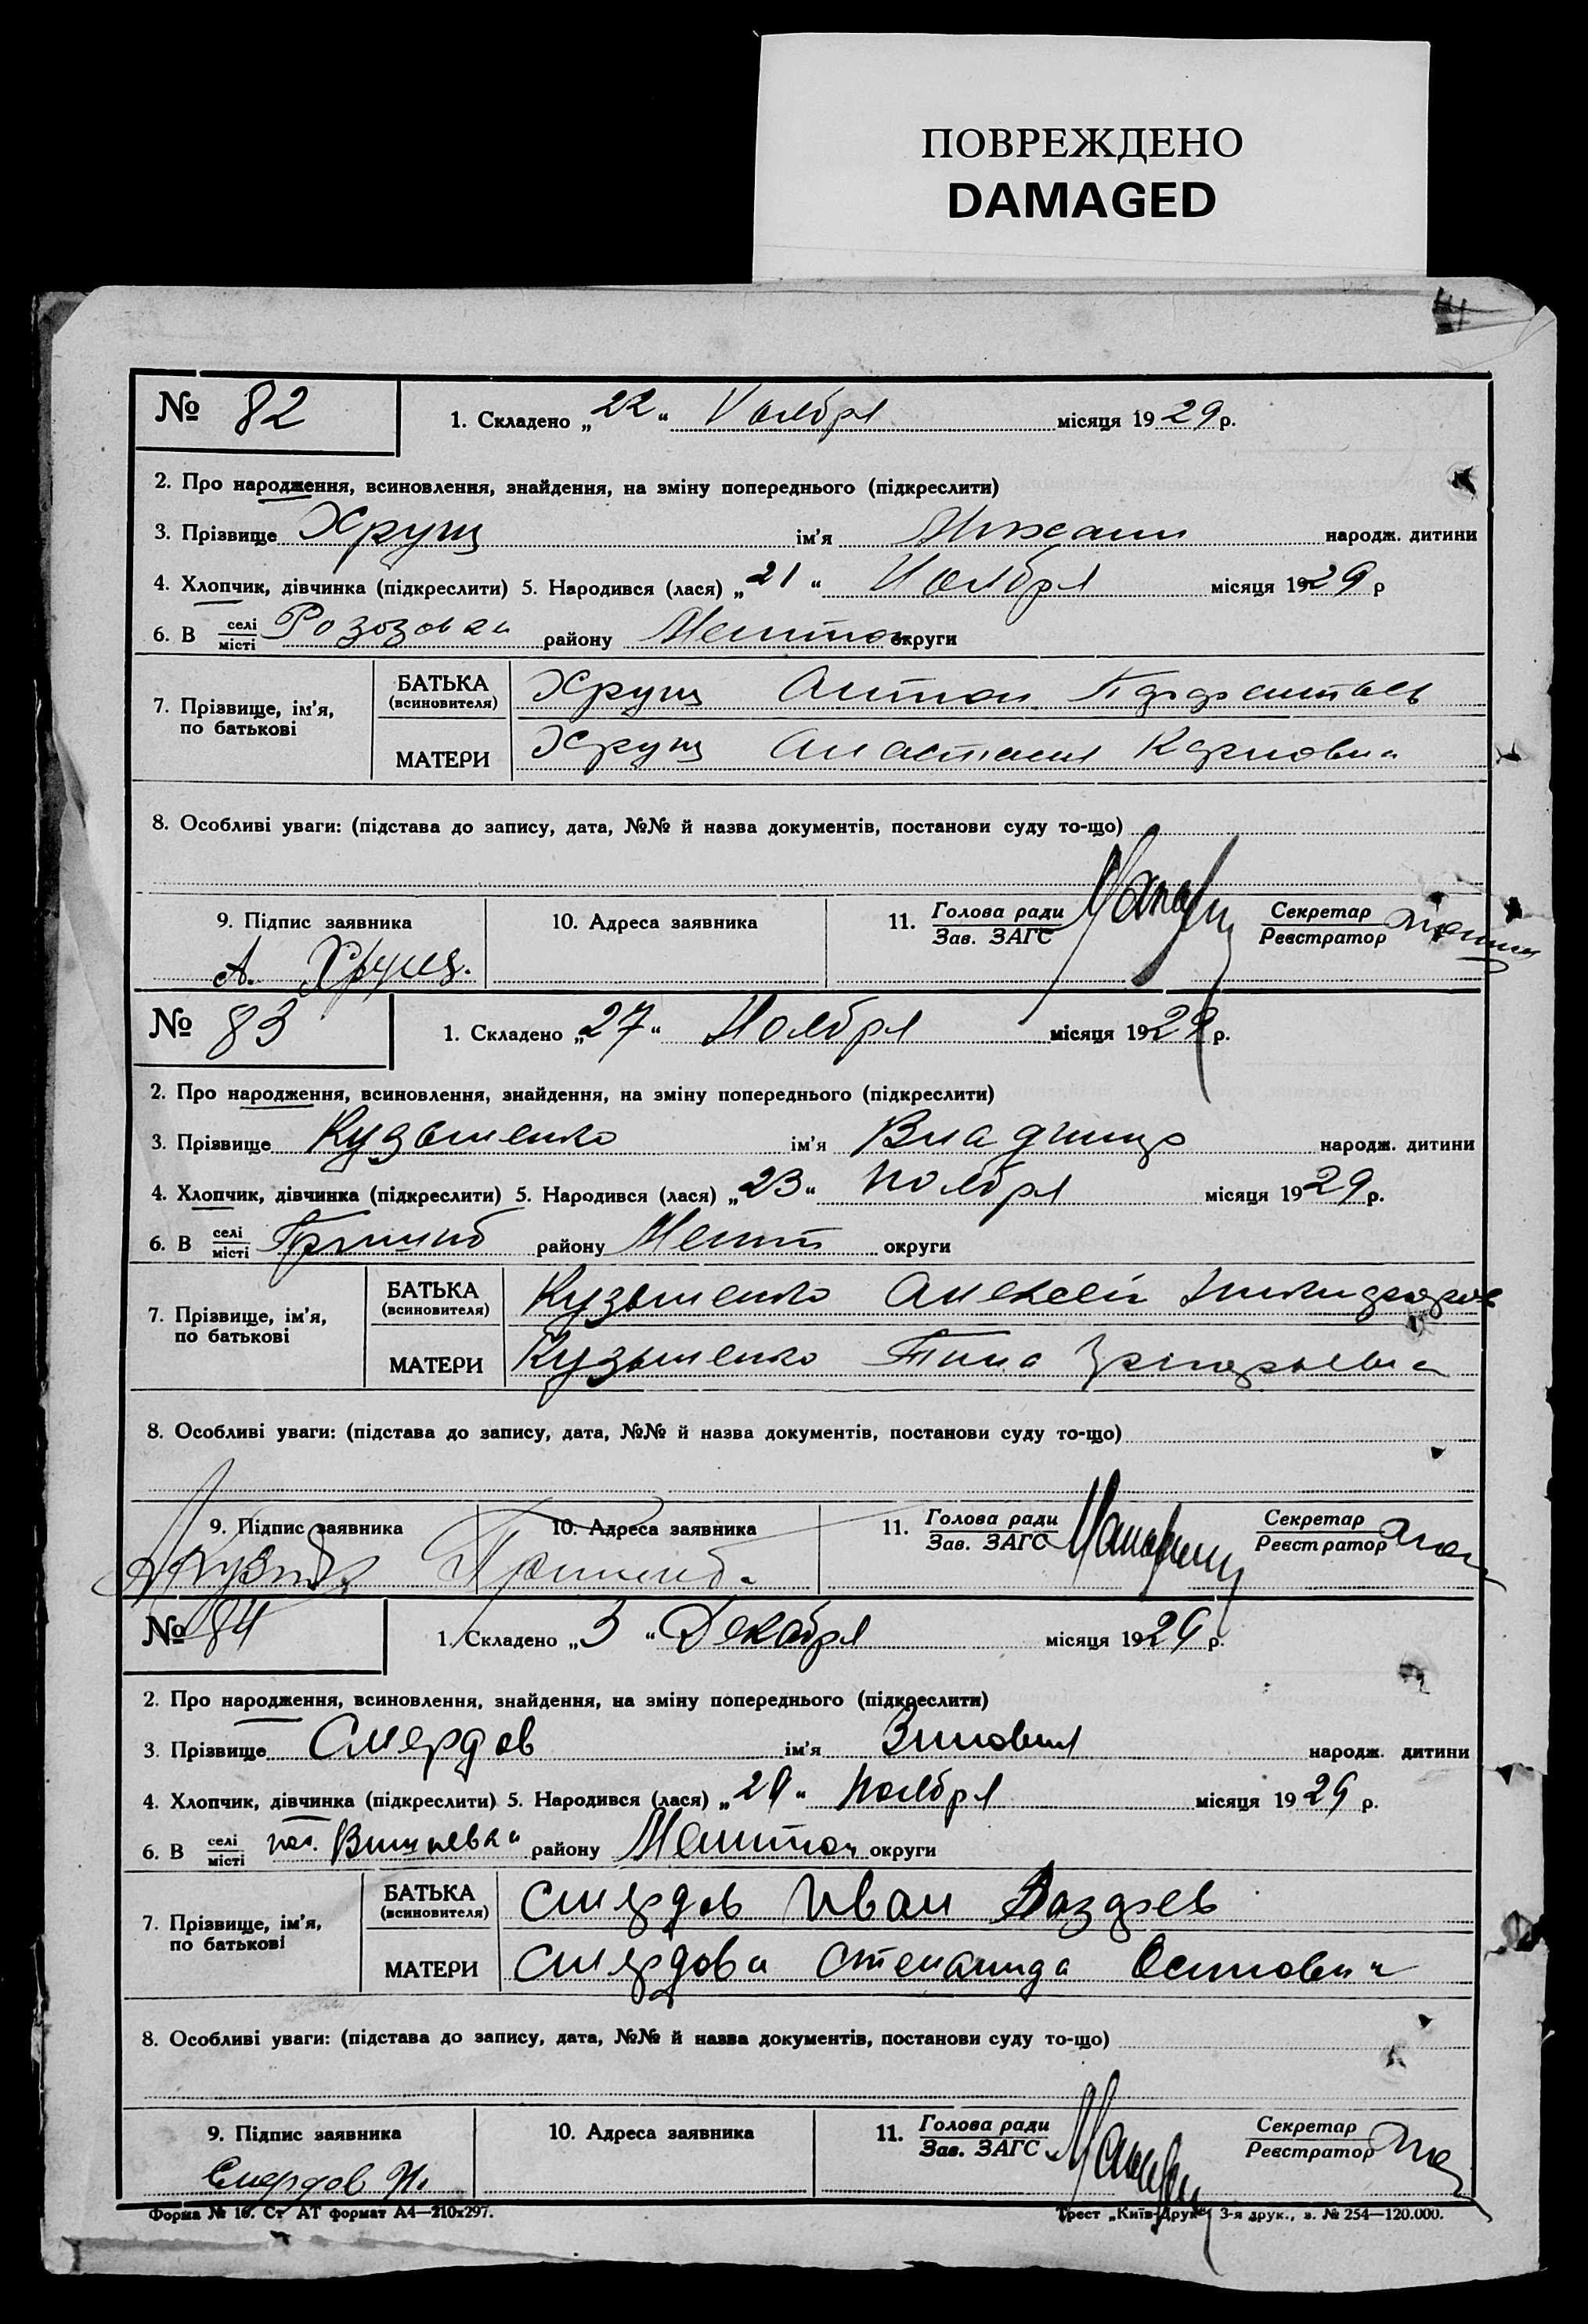 ПОВРЕЖДЕНО
DAMAGED
№ 82 1. Складено „22“ Ноября місяця 1929 р.
2. Про народження, всиновлення, знайдення, на зміну попереднього (підкреслити)
3. Прізвище Хрущ ім'я Михаил народж. дитини
4. Хлопчик, дівчинка (підкреслити) 5. Народився (лася) „21“ Ноября місяця 1929 р
6. В селі/місті Розовка району округи
7. Прізвище, ім'я, по батькові
БАТЬКА (всиновителя) Хрущ Антон
МАТЕРИ Хрущ Анастасия Карповна
8. Особливі уваги: (підстава до запису, дата, №№ й назва документів, постанови суду то-що)
9. Підпис заявника 10. Адреса заявника 11. Голова ради/Зав. ЗАГС Секретар/Реєстратор
А. Хрущ.
№ 83 1. Складено „27“ Ноября місяця 1929 р.
2. Про народження, всиновлення, знайдення, на зміну попереднього (підкреслити)
3. Прізвище Кузьменко ім'я народж. дитини
4. Хлопчик, дівчинка (підкреслити) 5. Народився (лася) „23“ Ноября місяця 1929 р.
6. В селі/місті району округи
7. Прізвище, ім'я, по батькові
БАТЬКА (всиновителя) Кузьменко Алексей
МАТЕРИ Кузьменко Григорьевна
8. Особливі уваги: (підстава до запису, дата, №№ й назва документів, постанови суду то-що)
9. Підпис заявника 10. Адреса заявника 11. Голова ради/Зав. ЗАГС Секретар/Реєстратор
№ 84 1. Складено „3“ Декабря місяця 1929 р.
2. Про народження, всиновлення, знайдення, на зміну попереднього (підкреслити)
3. Прізвище Смердов ім'я Зиновия народж. дитини
4. Хлопчик, дівчинка (підкреслити) 5. Народився (лася) „29“ Ноября місяця 1929 р.
6. В селі/місті району округи
7. Прізвище, ім'я, по батькові
БАТЬКА (всиновителя) Смердов Иван
МАТЕРИ Смердова Степанида Осиповна
8. Особливі уваги: (підстава до запису, дата, №№ й назва документів, постанови суду то-що)
9. Підпис заявника 10. Адреса заявника 11. Голова ради/Зав. ЗАГС Секретар/Реєстратор
Смердов И.
Форма № 16. Ст АТ формат А4—210х297. Трест „Київ-Друк“ 3-я друк., з. № 254—120.000.